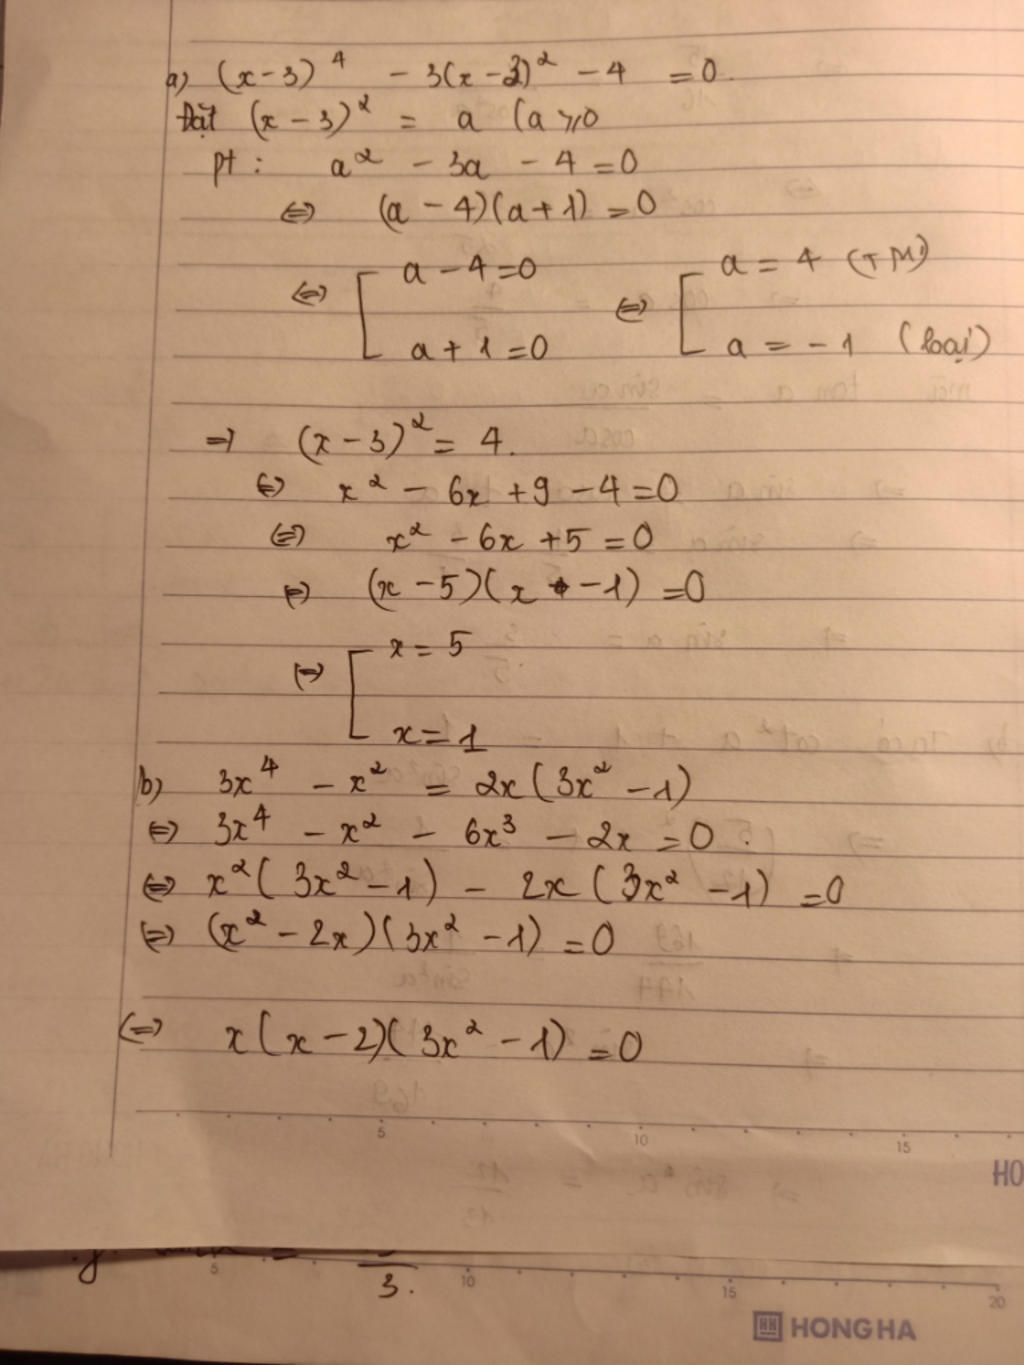 a) (x-3)⁴ - 3(x-3)² - 4 = 0.
Đặt (x-3)² = a (a ⩾ 0
pt : a² - 3a - 4 = 0
⇔ (a - 4)(a + 1) = 0
⇔ [ a - 4 = 0 ⇔ [ a = 4 (TM)
a + 1 = 0 a = -1 (loại)
⇒ (x-3)² = 4.
⇔ x² - 6x + 9 - 4 = 0
⇔ x² - 6x + 5 = 0
⇔ (x - 5)(x - 1) = 0
⇔ [ x = 5
x = 1
b) 3x⁴ - x² = 2x(3x² - 1)
⇔ 3x⁴ - x² - 6x³ - 2x = 0.
⇔ x²(3x² - 1) - 2x(3x² - 1) = 0
⇔ (x² - 2x)(3x² - 1) = 0
⇔ x(x - 2)(3x² - 1) = 0
5 10 15
HO
3.
5 10 15 20
HH HONG HA